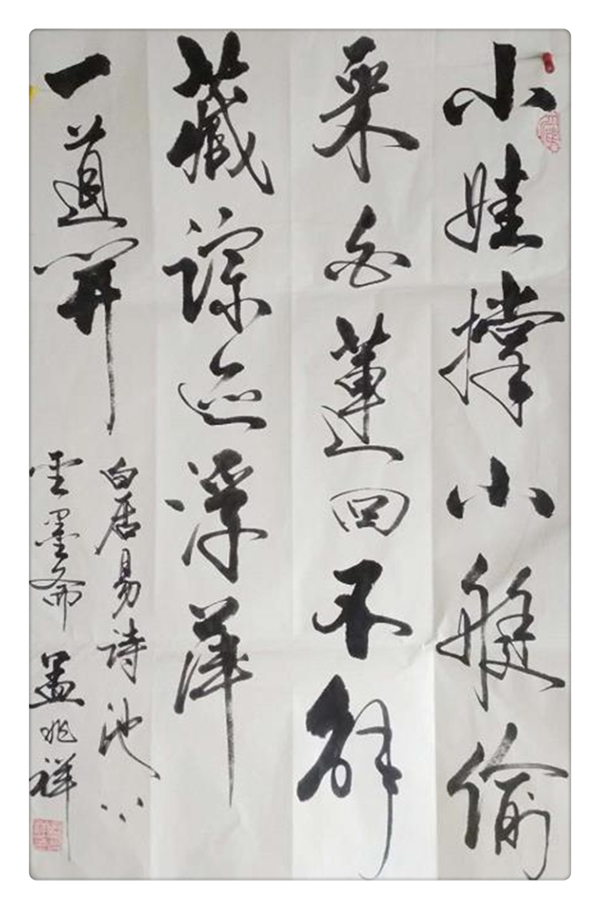 小娃撑小艇偷
采白蓮回不解
藏踪迹浮萍
一道開
白居易詩池上
雲墨斋 兆祥